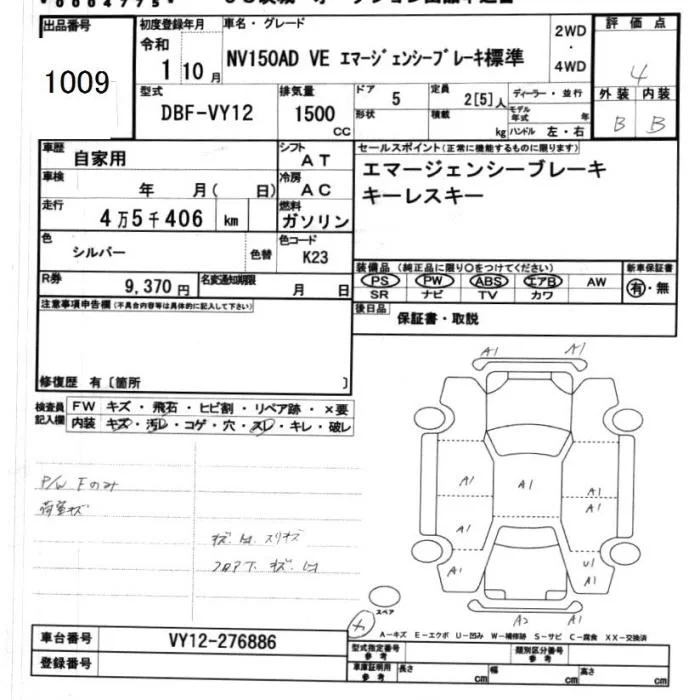 出品番号 初度登録年月 車名・グレード 2WD ・ 4WD 評価点
1009 令和 1 10月 NV150AD VE エマージェンシーブレーキ標準 4
型式 排気量 ドア 定員 ディーラー・並行 外装 内装
DBF-VY12 1500 CC 5 2[5]人 モデル年式 年 B B
形状 積載 kg ハンドル 左・右
車歴 自家用 シフト AT セールスポイント(正常に機能するものに限ります)
車検 年 月( 日) 冷房 AC エマージェンシーブレーキ
走行 4万5千406 km 燃料 ガソリン キーレスキー
色 シルバー 色替 色コード K23
装備品 (純正品に限り○をつけてください) 新車保証書
R券 9,370円 名変通知期限 月 日 PS PW ABS エアB AW 有・無
SR ナビ TV カワ
注意事項申告欄(不具合内容等は具体的に記入して下さい) 後日品 保証書・取説
修復歴 有〔箇所 〕
検査員記入欄 FW キズ・飛石・ヒビ割・リペア跡・×要
内装 キズ・汚レ・コゲ・穴・スレ・キレ・破レ
A1 A1
P/W Fのみ A1 A1 A1
荷室キズ A1 A1
キズ. スリキズ A1 U1
フロア下 キズ. A1 A1
スペア
A2 A1
A-キズ E-エクボ U-凹み W-補修跡 S-サビ C-腐食 XX-交換済
車台番号 VY12-276886 型式指定番号 参考 類別区分番号 参考
登録番号 車庫証明用 参考 長さ cm 幅 cm 高さ cm